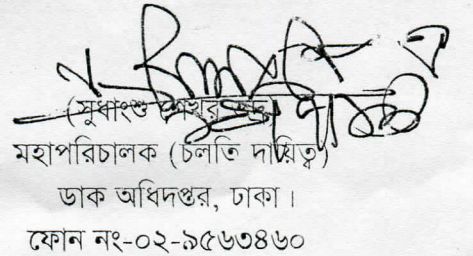 (সুধাংশু শেখর
মহাপরিচালক (চলতি দায়িত্ব)
ডাক অধিদপ্তর, ঢাকা।
ফোন নং-০২-৯৫৬৩৪৬০